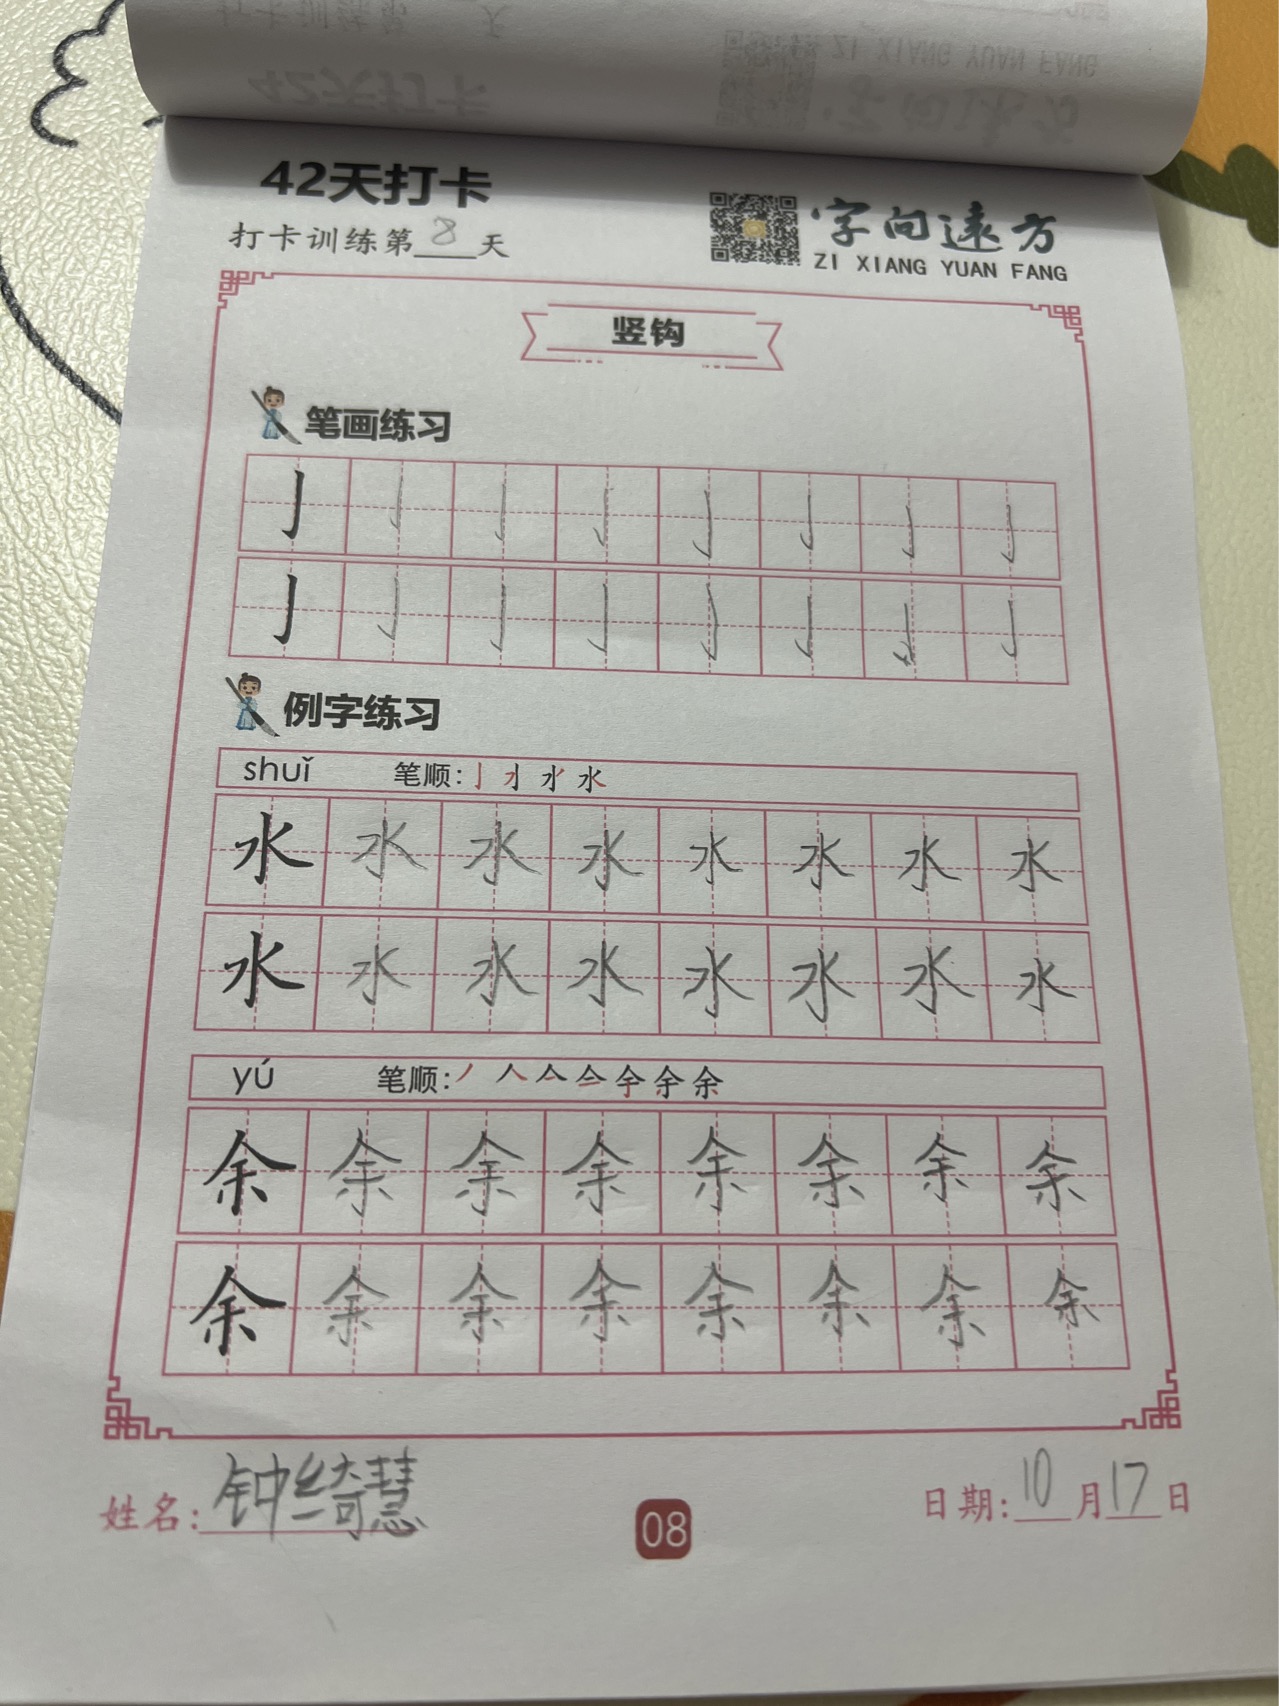 42天打卡
打卡训练第8天
字向远方
ZI XIANG YUAN FANG
竖钩
笔画练习
亅 亅 亅 亅 亅 亅 亅 亅
亅 亅 亅 亅 亅 亅 亅 亅
例字练习
shuǐ 笔顺:
水 水 水 水 水 水 水 水
水 水 水 水 水 水 水 水
yú 笔顺:
余 余 余 余 余 余 余 余
余 余 余 余 余 余 余 余
姓名:钟绮慧
08
日期:10月17日